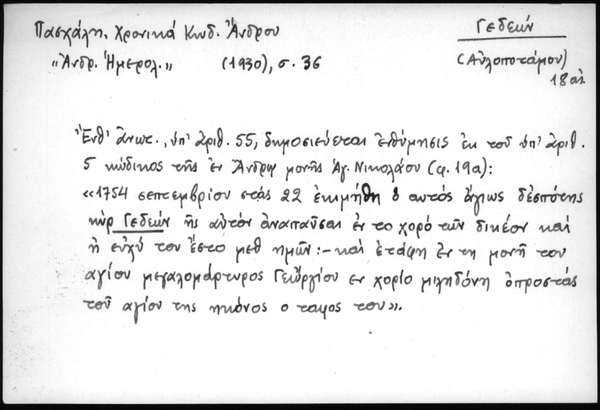 Πασχάλη, Χρονικά Κωδ. Ἄνδρου
Γεδεών
"Ἀνδρ. Ἡμερολ." (1930), σ. 36
(Αὐλοποτάμου)
18 αἰ.
Ἔνθ' ἀνωτ., ὑπ' ἀριθ. 55, δημοσιεύεται ἐνθύμησις ἐκ τοῦ ὑπ' ἀριθ.
5 κώδικος τῆς ἐν Ἄνδρῳ μονῆς Ἁγ. Νικολάου (φ. 19α):
«1754 σεπτεμβρίου στὰς 22 ἐκιμήθη ὁ αυτός ἅγιως δεσπότης
κὺρ Γεδεών ῆς αὐτὸν ἀναπαῦσαι ἐν το χορό τῶν δικέον καὶ
ἡ εὐχή του ἔστο μεθ ημῶν:- καὶ ἐτάφη ἐν τη μονῆ του
αγίου μεγαλομάρτυρος Γεώργίου εν χορίο μιληδόνη ὀπροστάς
τοῦ αγίου της ηκόνος ο ταφος του».